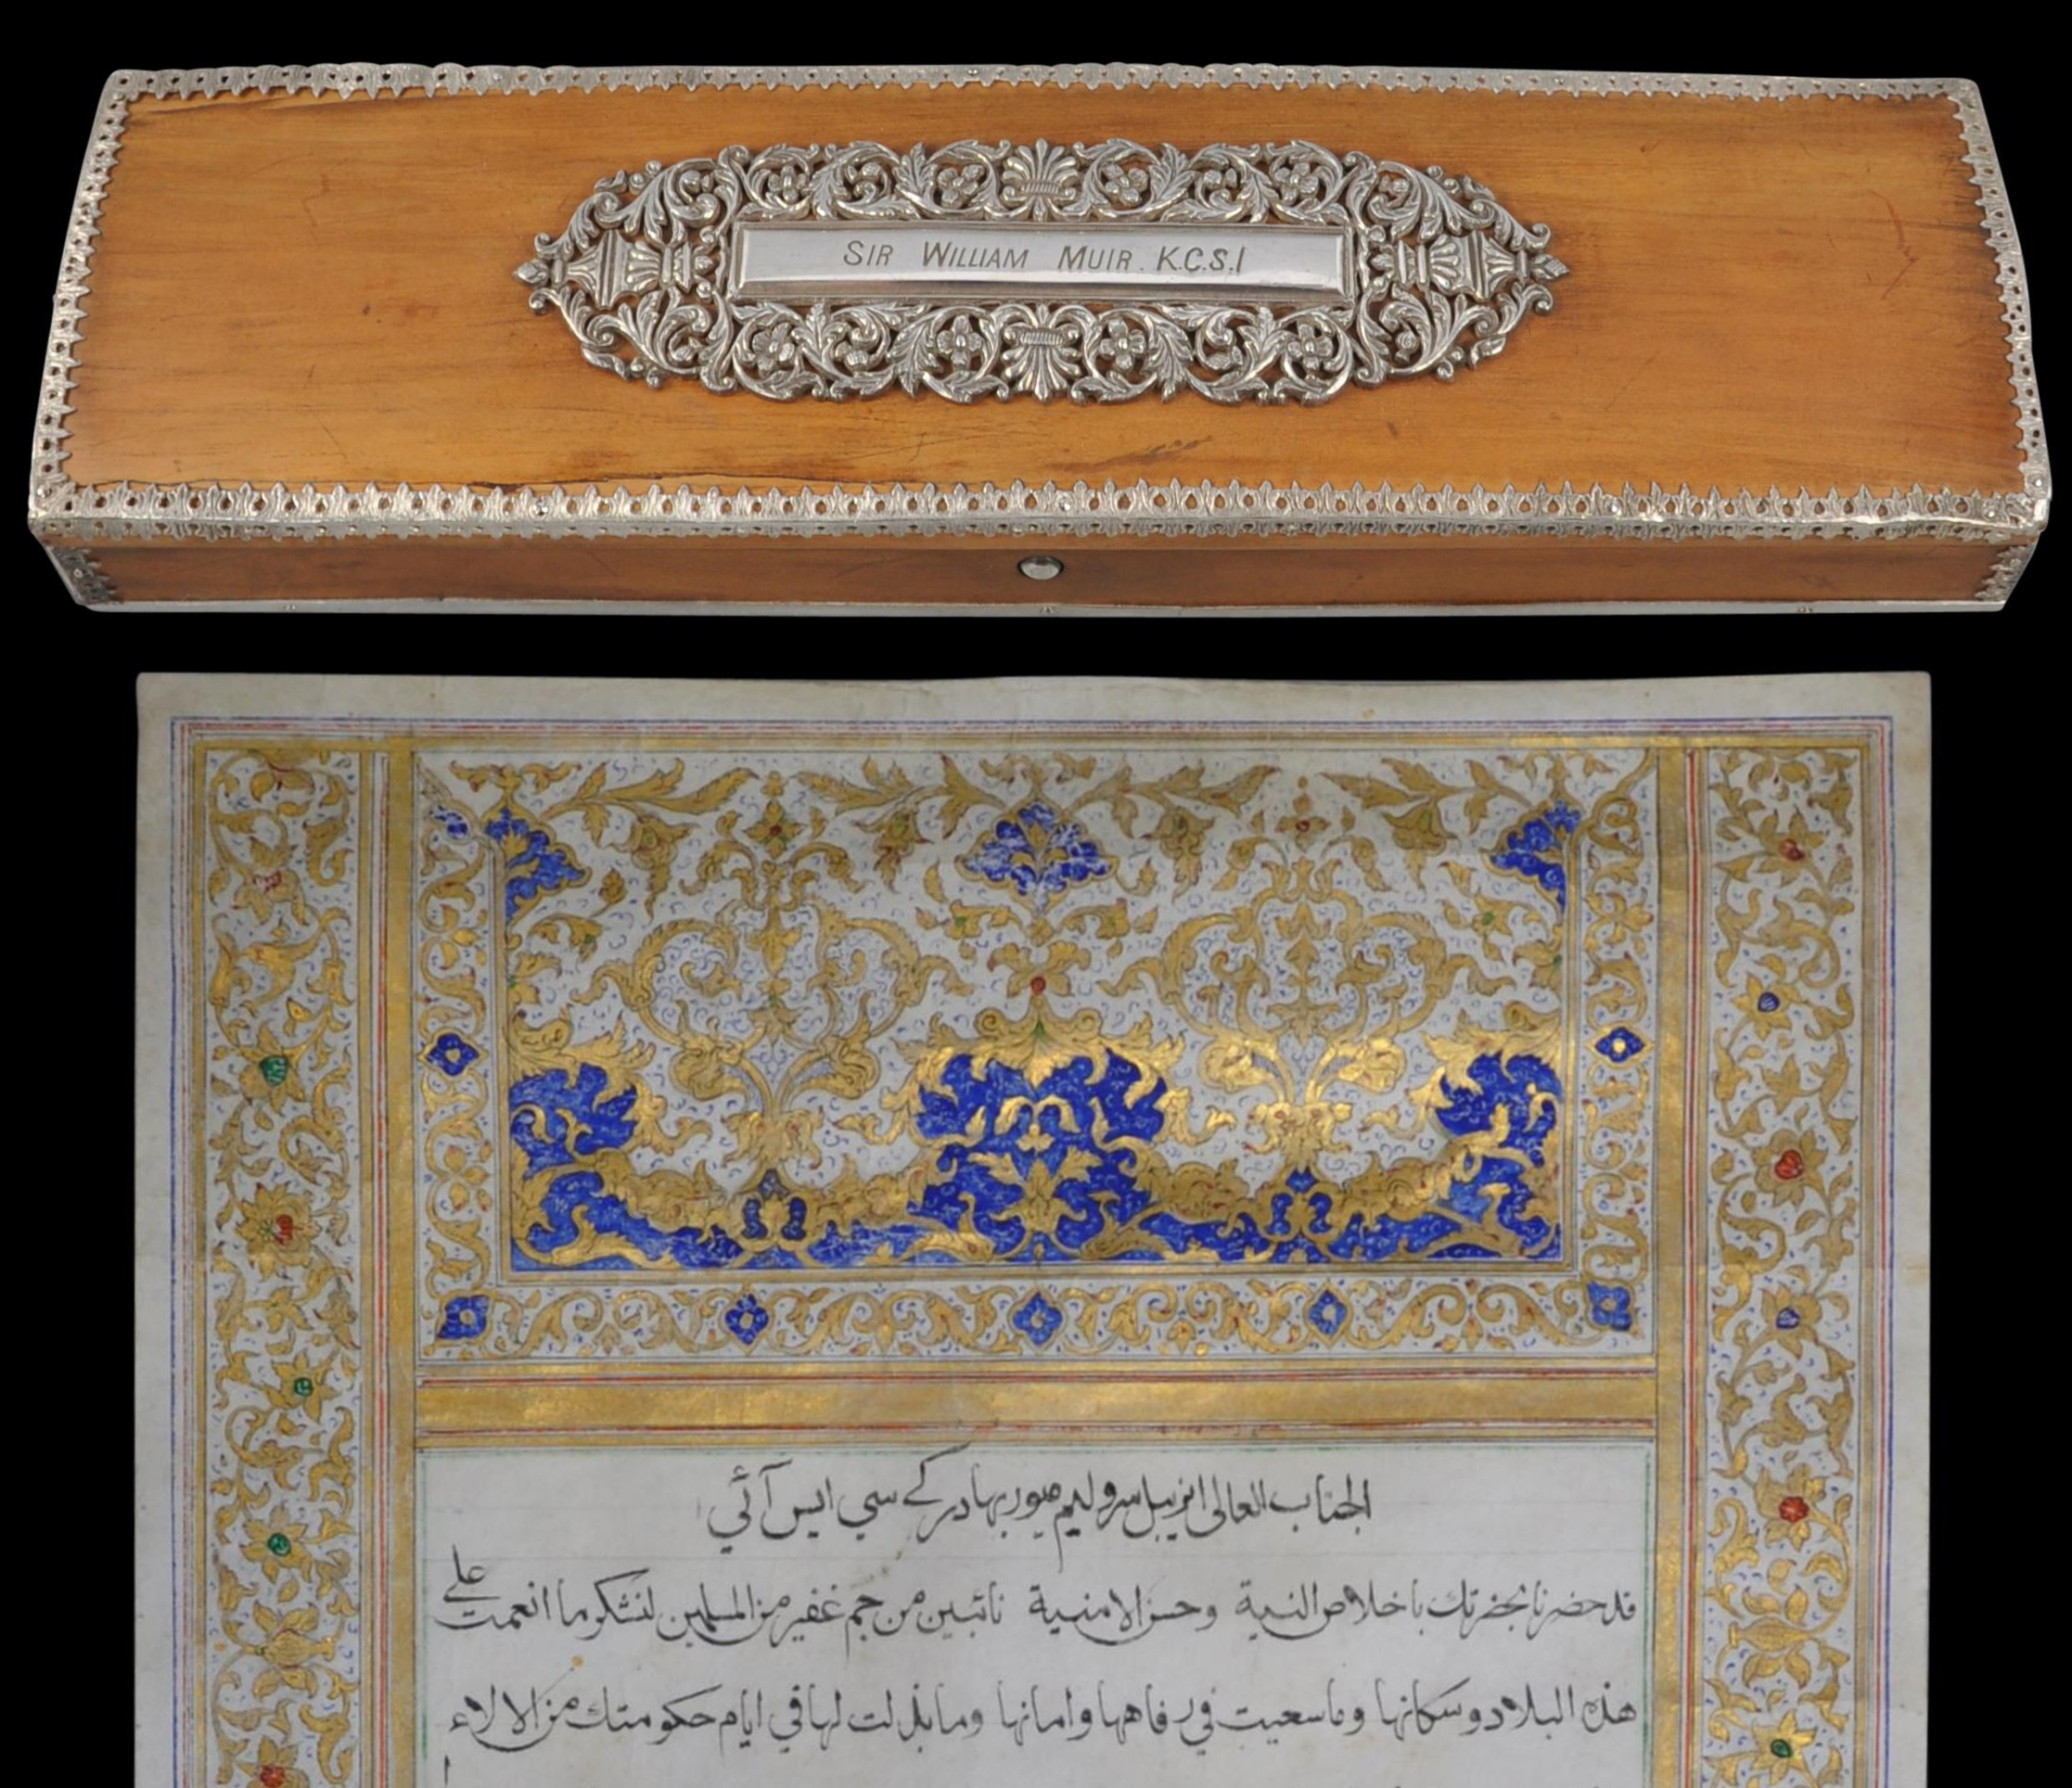 SIR WILLIAM MUIR. K.C.S.I
الجناب العالی انریبل سر ولیم میور بهادر کے سي ایس آئي
قد حضرنا بحضرتك باخلاص النية وحسن الامنية نائبين من جم غفير من المسلمين لنشكر ما انعمت على
هذه البلاد وسكانها وما سعيت في رفاهها وامانها وما بذلت لها في ايام حكومتك من الالاء